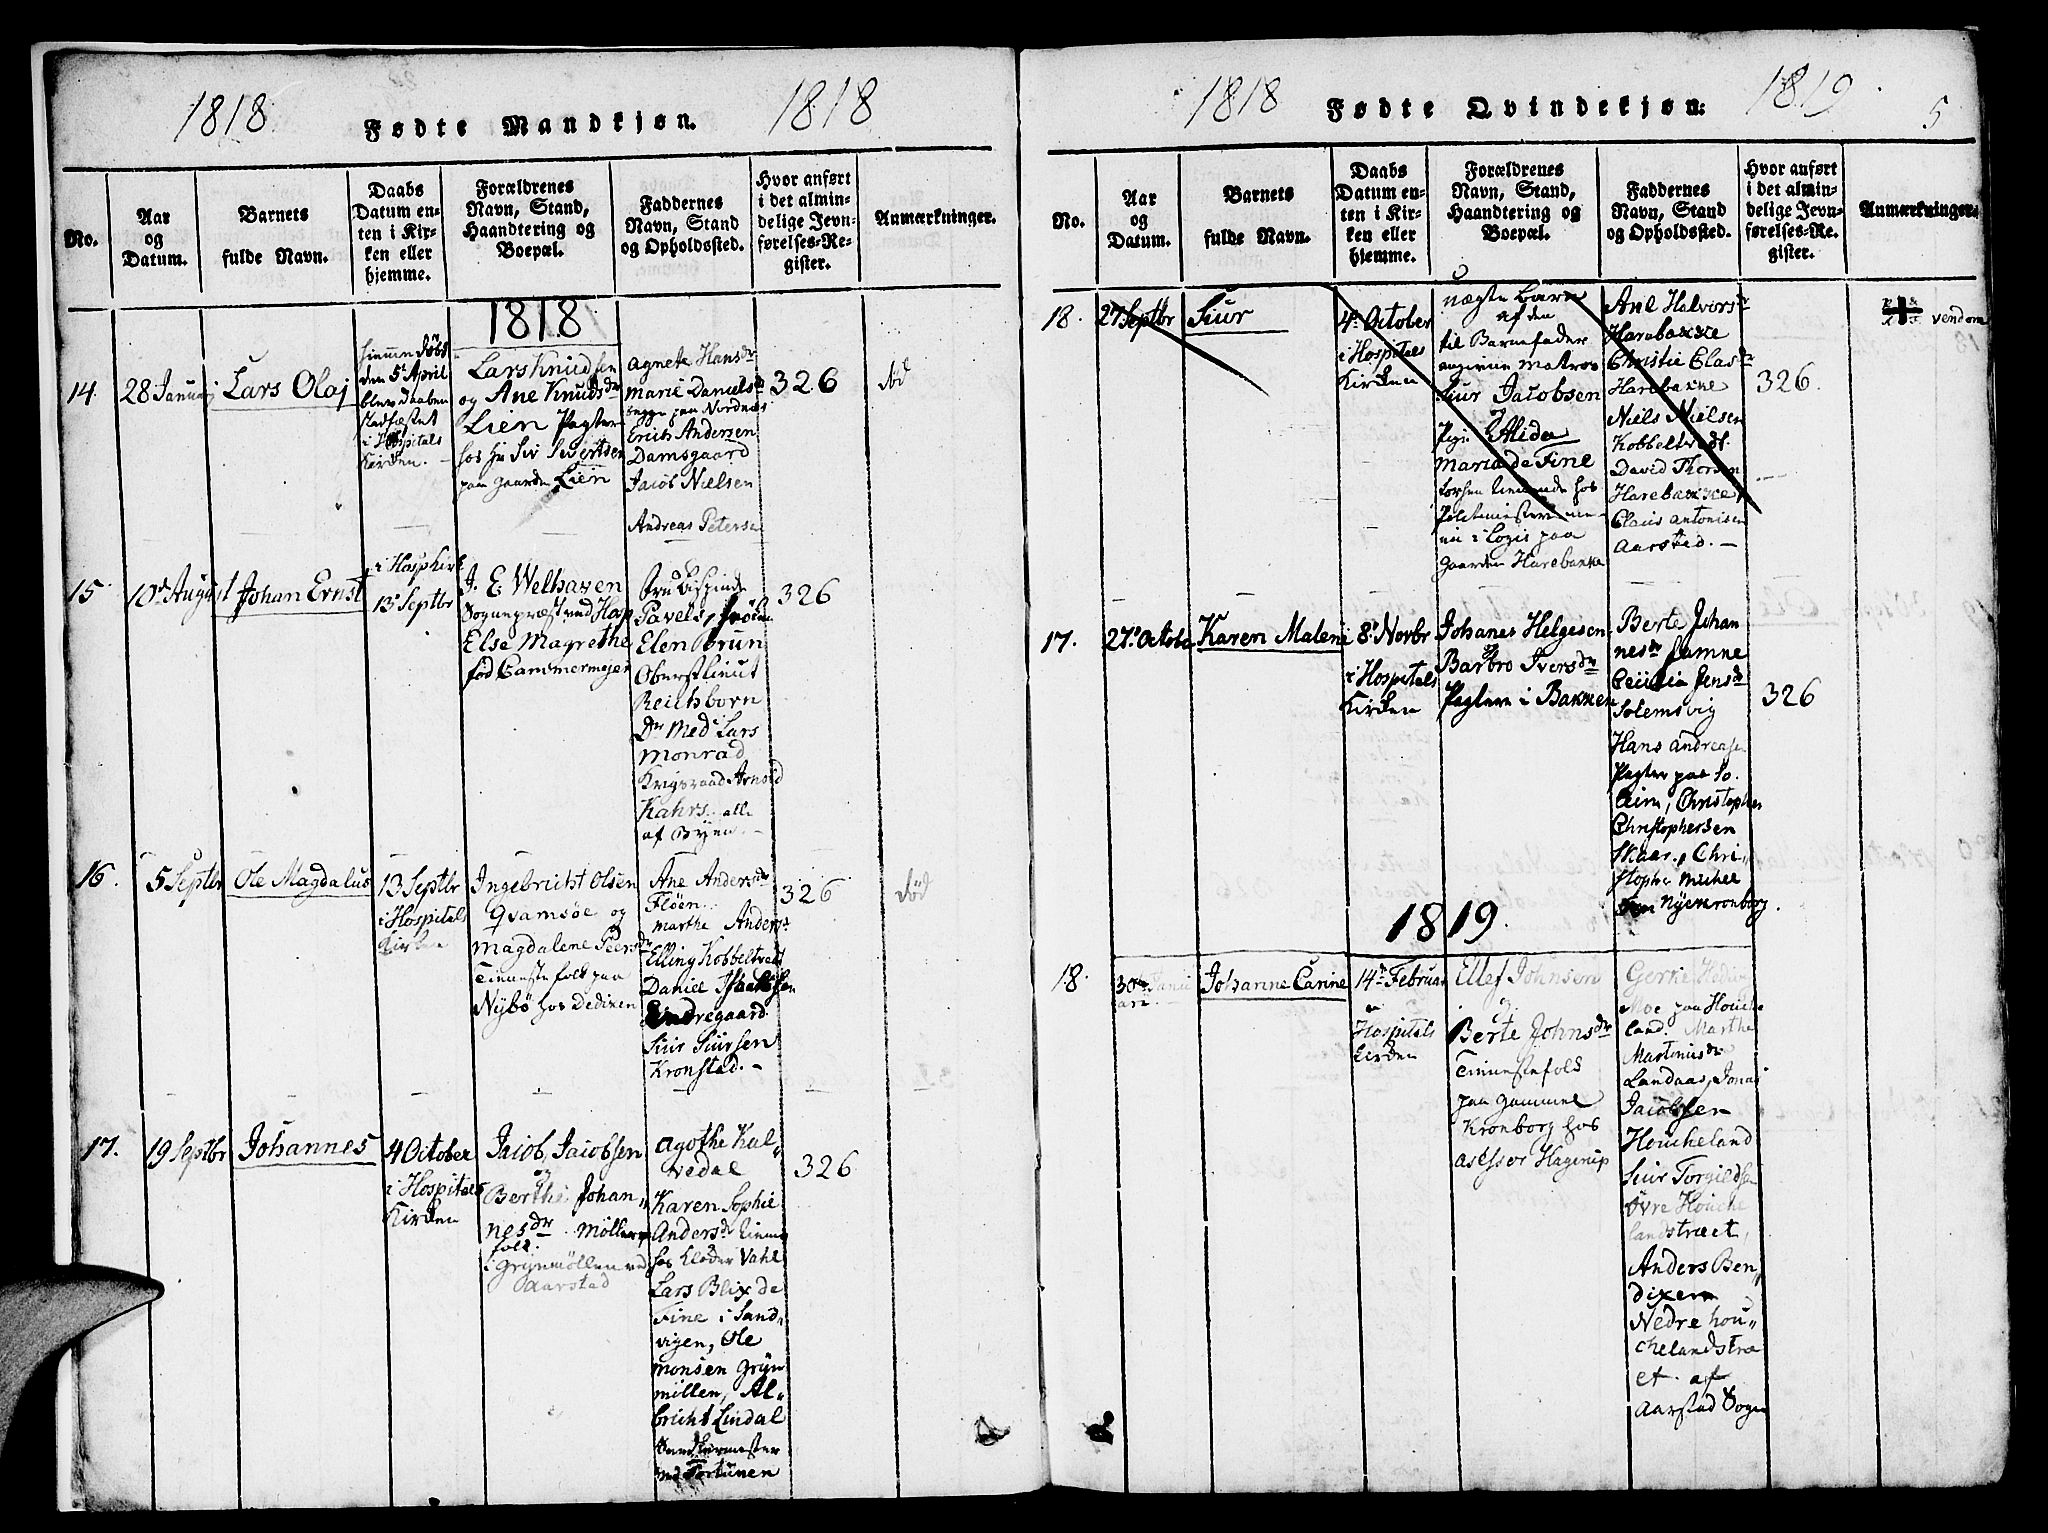 1818
Fødte Mandkjøn.
1818
No.
Aar
og
Datum.
Barnets
fulde Navn.
Daabs
Datum en-
ten i Kir-
ken eller
hjemme.
Forældrenes
Navn, Stand,
Haandtering og
Boepæl.
Faddernes
Navn, Stand
og Opholdssted.
Hvor anført
i det almin-
delige Jevn-
førelses-Re-
gister.
Anmærkninger.
1818
14.
28 Januarj
Lars Olaj
hiemmedøbt
den 5t April
blev Daaben
stadfæstet
i Hospitals
Kirken.
Lars Knudsen
og Ane Knudsdr
Lien Pagter
hos Hr Siv Sivertsen
paa Gaarden Lien
Agnete Hansdr
Marie Danielsdr
begge paa Nordnæs
Erich Andersen
Damsgaard
Jacob Nielsen
Andreas Petersen
326
død
15
10d August
Johan Ernst
i Hospkirk
13 Septbr
J. E. Welhaven
Sognepræst ved Hosp
Else Magrethe
fød Cammermejer
Fru Bispinde
Pavels, Frøken
Elen Brun
Oberstlieut
Reichborn
Dr Med Lars
Monrad
Krigsraad Arnold
Kahrs. alle
af Byen.
326
16.
5 Septbr
Ole Magdalus
13 Septbr
i Hospitals
Kirken
Ingebricht Olsen
Qvamsöe og
Magdalene Peersdr
Tienestefolk paa
Nybö hos Dedixen
Ane Andersdr
Flöen.
Marthe Andersdr
Elling Kobbeltvedt
Daniel Isaksen
Endregaard
Siur Siursen
Kronstad.
326
død
17.
19 Septbr
Johannes
4 October
i Hospitals
Kirken
Jacob Jacobsen
og
Berthe Johan„
nesdr. Möller
folk.
i Grynmöllen ved
Aarstad
Agothe Kal„
vedal
Karen Sophie
Andersdr tien
hos Klokker Vahl
Lars Blix de
Fine i Sand„
vigen, Ole
Monsen Gryn
möllen, Al„
bricht Lindal
ved Fortunen
326
1818
Fødte Qvindekjøn.
1819
5
No.
Aar
og
Datum.
Barnets
fulde Navn.
Daabs
Datum en-
ten i Kir-
ken eller
hjemme.
Forældrenes
Navn, Stand,
Haandtering og
Boepæl.
Faddernes
Navn, Stand
og Opholdssted.
Hvor anført
i det almin-
delige Jevn-
førelses-Re-
gister.
Anmærkninger.
18.
27 Septbr
Siur
4 October
i Hospitals
Kirken
Uægte Barn
af den
til Barnefader
angivne Matros
Siur Jacobsen
og
Pige Alida
Maria de Fine
forhen tienende hos
Politimesteren
nu i Logis paa
Gaarden Harebakke
Ane Halvorsdr
Harebakke
Christie Clasdr
Harebakke
Niels Nielsen
Kobbeltvedt
David Thorsen
Harebakke
Claus Antonisen
Aarstad.
326.
vendom
17.
27. October
Karen Malene
8 Novbr
i Hospitals
Kirken
Johanes Helgesen
og
Barbro Iversdr
Pagtere i Bakken
Berte Johan
nesdr Jamne
Cecilia Jensdr
Solemsvig
Hans Andreasen
Pagter paa So
leim, Christopher
Christophersen
Skaar, Chri„
stopher Michel
sen Nyekronborg.
326
1819.
18.
30te Janu
ari.
Johanne Carine
14de Februar
i
Hospitals
Kirken
Ellef Johnsen
og
Berte Johnsdr
Tienestefolk
paa Gammel
Kronborg hos
Assessor Hagerup
Moe paa Houche
land. Marthe
Martinusdr
Landaas, Jonas
Jacobsen
Houcheland
Siur Torgildsen
Övre Houche
landstræet,
Anders Ben„
dixen
Nedre Hou„
chelandstræ
et. af
Aarstad Sogn